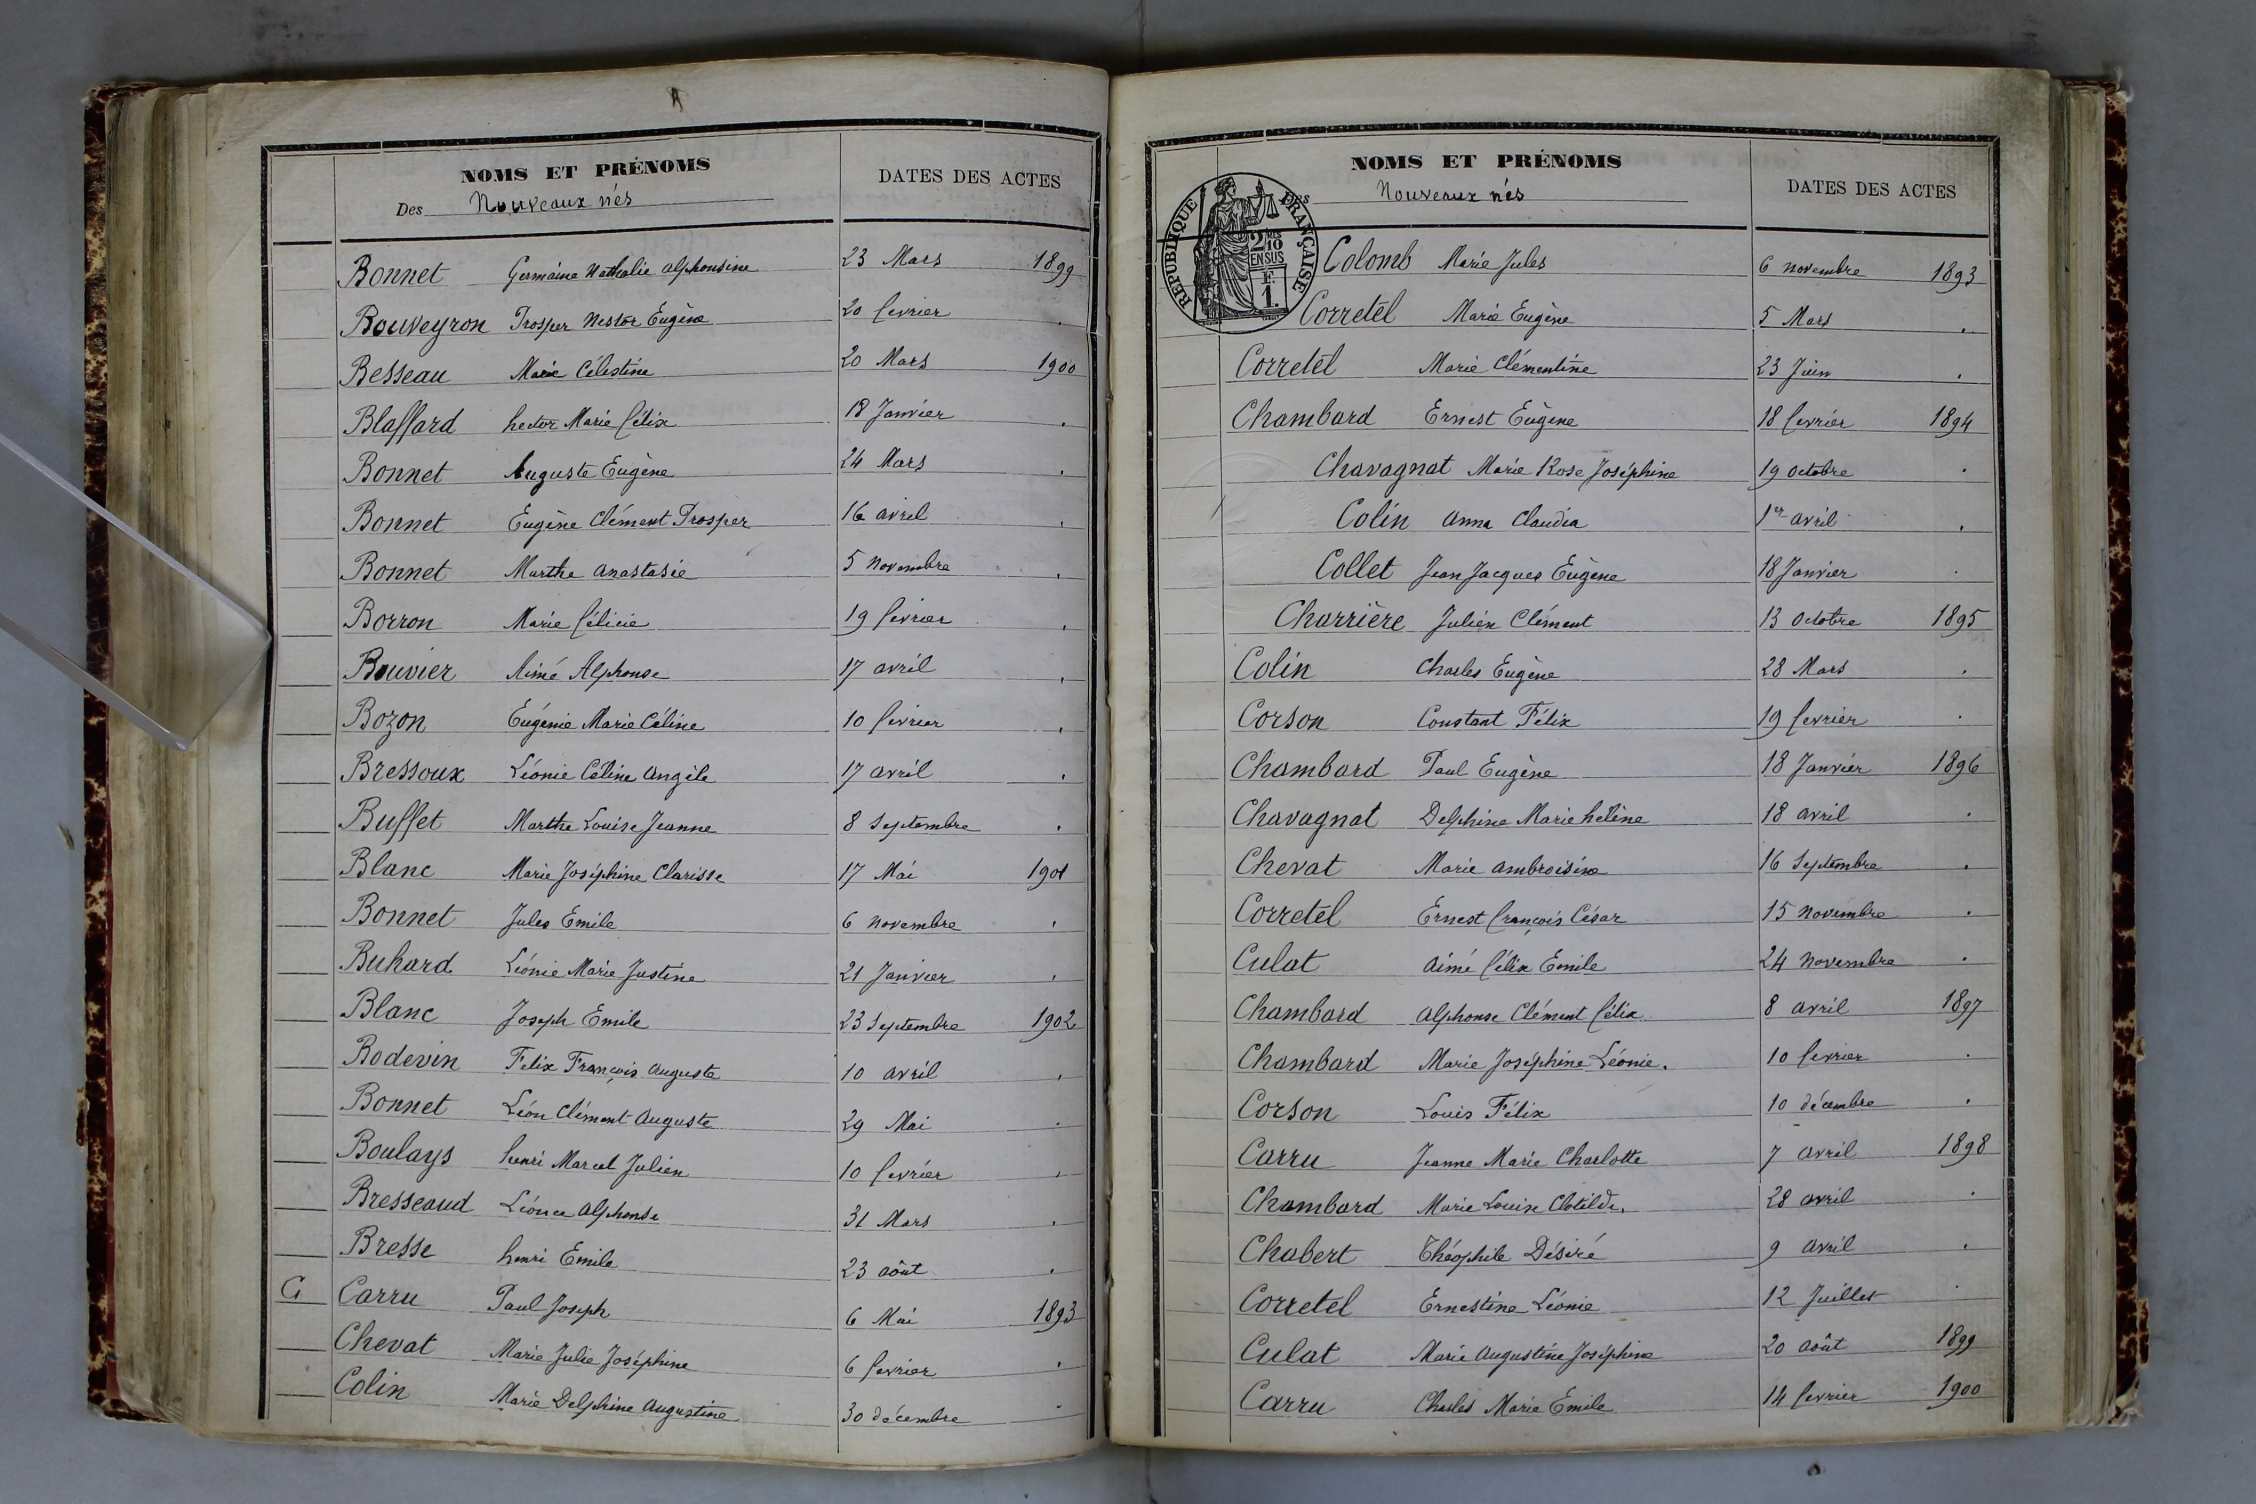 NOMS ET PRÉNOMS DATES DES ACTES
Des Nouveaux nés
Bonnet Germaine Nathalie Alphonsine 23 Mars 1899
Bouveyron Prosper Nestor Eugène 20 fevrier .
Besseau Marie Célestine 20 Mars 1900
Blaffard hector Marie félix 18 Janvier .
Bonnet Auguste Eugène 24 Mars .
Bonnet Eugène Clément Prosper 16 avril .
Bonnet Marthe Anastasie 5 Novembre .
Borron Marie félicie 19 fevrier .
Bouvier Aimé Alphonse 17 avril .
Bozon Eugénie Marie Céline 10 fevrier .
Bressoux Léonie Céline Angèle 17 avril .
Buffet Marthe Louise Jeanne 8 Septembre .
Blanc Marie Joséphine Clarisse 17 Mai 1901
Bonnet Jules Emile 6 novembre .
Buhard Léonie Marie Justine 21 Janvier .
Blanc Joseph Emile 23 Septembre 1902
Bodevin Felix François Auguste 10 avril .
Bonnet Léon Clément Auguste 29 Mai .
Boulays henri Marcel Julien 10 fevrier .
Bresseaud Léonce Alphonse 31 Mars .
Bresse henri Emile 23 août .
C Carru Paul Joseph 6 Mai 1893
Chevat Marie Julie Joséphine 6 fevrier .
Colin Marie Delphine Augustine 30 décembre .
NOMS ET PRÉNOMS DATES DES ACTES
Des Nouveaux nés
RÉPUBLIQUE FRANÇAISE
2/10
EN SUS
F.
1.
Colomb Marie Jules 6 novembre 1893
Corretel Marie Eugène 5 Mars .
Corretel Marie Clémentine 23 Juin .
Chambard Ernest Eugène 18 fevrier 1894
Chavagnat Marie Rose Joséphine 19 octobre .
Colin Anna Claudia 1er avril .
Collet Jean Jacques Eugène 18 Janvier .
Charrière Julien Clément 13 octobre 1895
Colin Charles Eugène 28 Mars .
Corson Constant Félix 19 fevrier .
Chambard Paul Eugène 18 Janvier 1896
Chavagnat Delphine Marie hélène 18 avril .
Chevat Marie Ambroisine 16 Septembre .
Corretel Ernest françois César 15 Novembre .
Culat Aimé félix Emile 24 Novembre .
Chambard Alphonse Clément félix 8 avril 1897
Chambard Marie Joséphine Léonie. 10 fevrier .
Corson Louis Félix 10 décembre .
Carru Jeanne Marie Charlotte 7 avril 1898
Chambard Marie Louise Clotilde. 28 avril .
Chabert Théophile Désiré 9 avril .
Corretel Ernestine Léonie 12 Juillet .
Culat Marie Augustine Joséphine 20 août 1899
Carru Charles Marie Emile 14 fevrier 1900